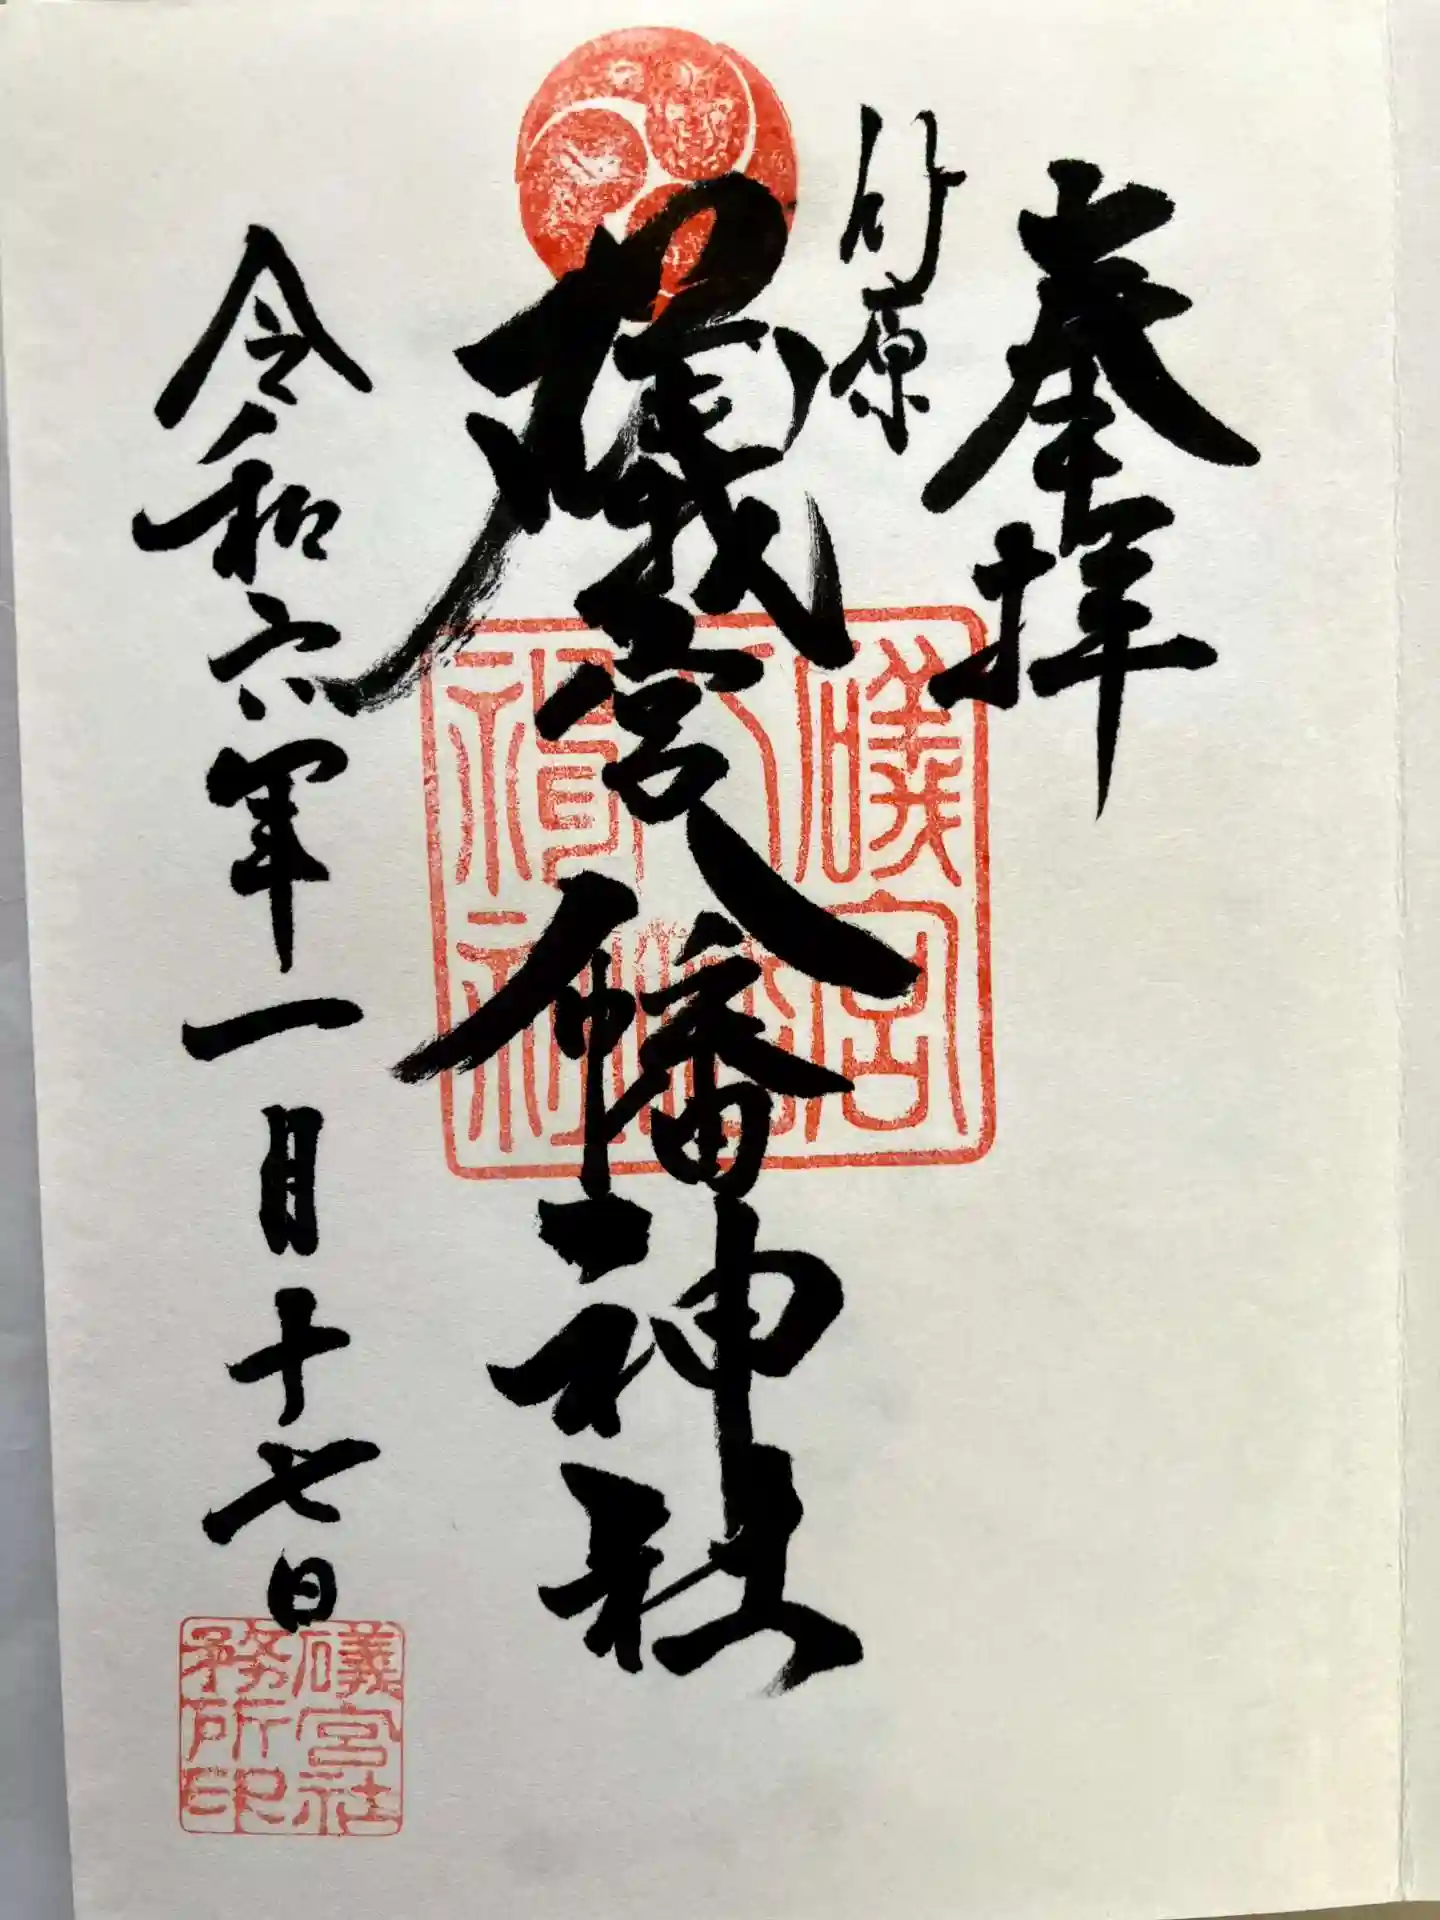 奉拝
竹原
礒宮八幡神社
令和六年一月十七日
礒宮
八幡
神社
礒宮社
務所印